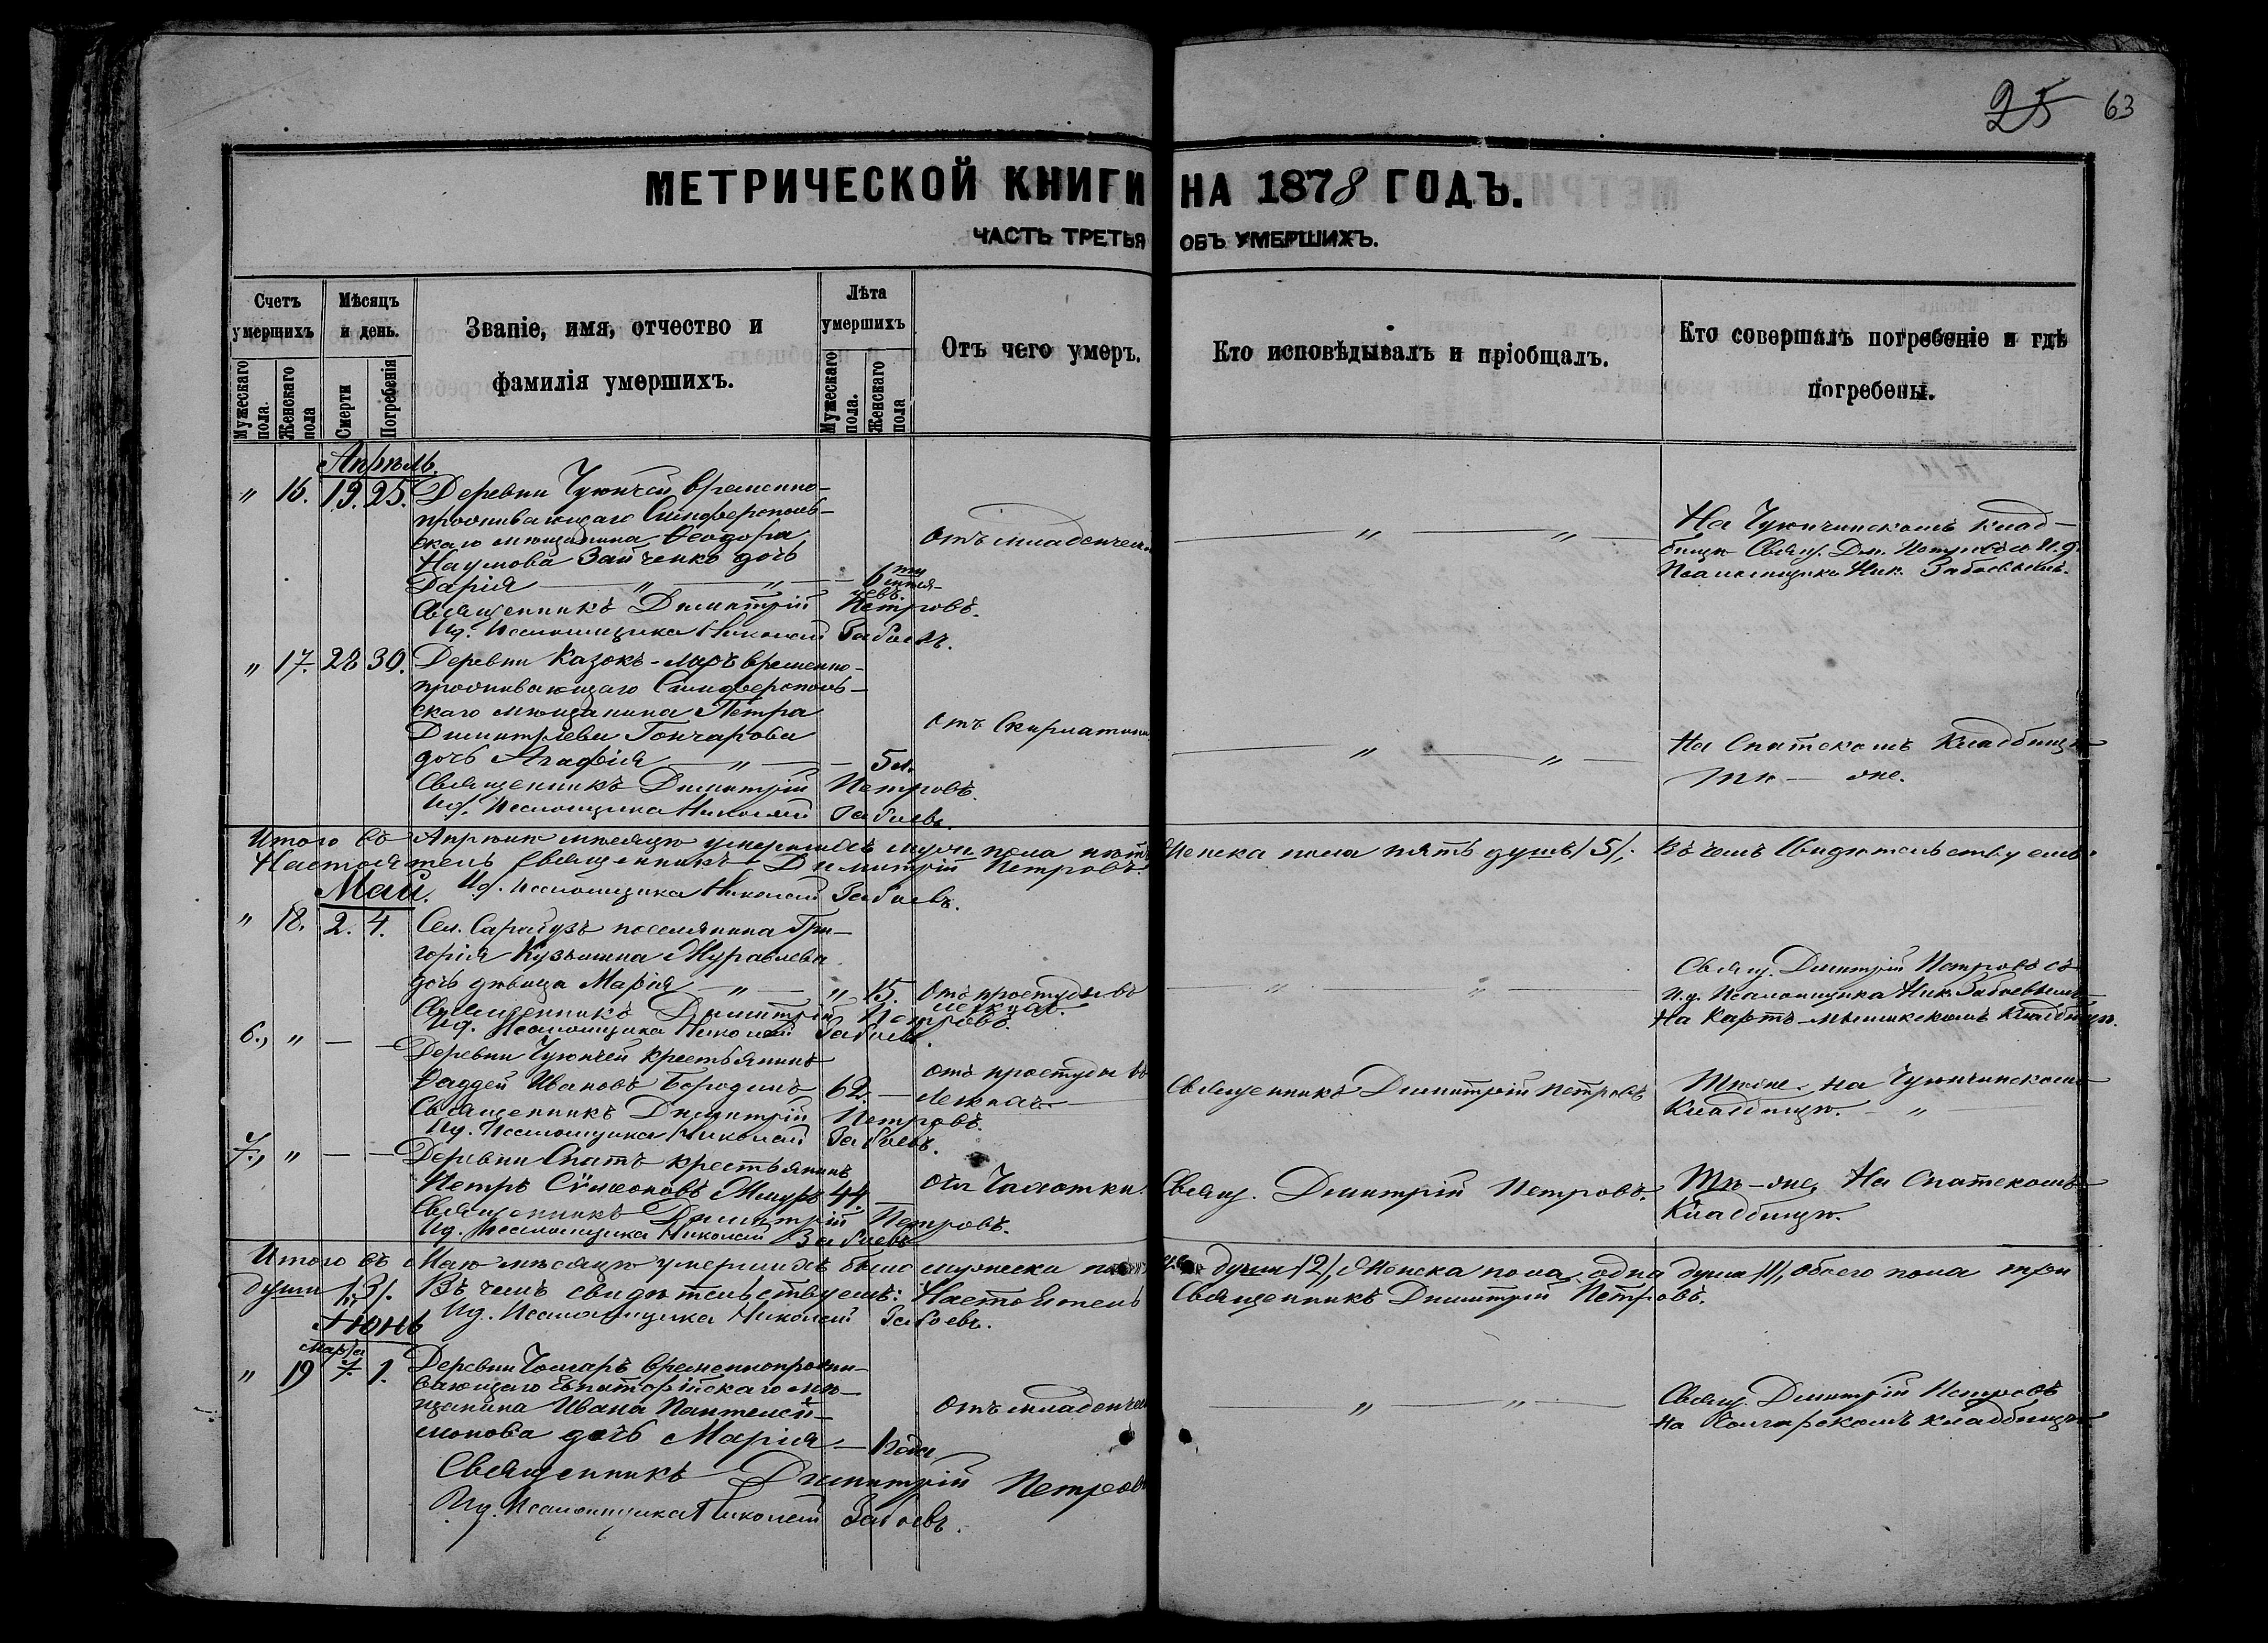 25 63
МЕТРИЧЕСКОЙ КНИГИ НА 1878 ГОДЪ.
ЧАСТЬ ТРЕТЬЯ ОБЪ УМЕРШИХЪ.
Счетъ умершихъ
Мужескаго пола.
Женскаго пола
Мѣсяцъ и день.
Смерти
Погребенія
Званіе, имя, отчество и фамилія умершихъ.
Лѣта умершихъ
Мужескаго пола.
Женскаго пола
Отъ чего умеръ.
Кто исповѣдывалъ и пріобщалъ.
Кто совершалъ погребеніе и гдѣ погребены.
Апрѣль.
" 16. 19. 25. Деревни Чуюнчей временно-
проживающаго Симферополь-
скаго мѣщанина Ѳеодора
Наумова Зайченко дочь
Дарія — " — " — 6
Отъ младенчес
— " — " —
На Чуюнчинскомъ клад-
бищѣ Свящ. Дм. Петровъ съ И. д.
Псаломщика Ник.
Священникъ Димитрій Петровъ.
Ид. Псаломщика Николай
" 17. 28 30. Деревни Казокъ- временно-
проживающаго Симферополь-
скаго мѣщанина Петра
Димитріева Гончарова
дочь Агафія — " — 5 л.
Отъ Скарлатины
— " — " —
На Спатскомъ Кладбищѣ
тѣ — же.
Священникъ Димитрій Петровъ.
Ид. Псаломщика Николай
Итого въ Апрѣлѣ мѣсяцѣ умершихъ муж. пола Женска пола пять душъ /5/. Въ чемъ свидѣтельствуемъ:
Настоятель Священникъ Димитрій Петровъ.
Ид. Псаломщика Николай
Май.
" 18. 2. 4. Сел. Сарабузъ поселянина Гри-
горія Кузьмина Журавлева
дочь дѣвица Марія — " — " 15. Отъ простуды въ
— " — " —
Свящ. Димитрій Петровъ съ
И. д. Псаломщика Ник.
На кладбищѣ.
Священникъ Димитрій Петровъ.
Ид. Псаломщика Николай
6., " — — Деревни Чуюнчей крестьянинъ
Ѳаддей Ивановъ Бородинъ 62. —
отъ простуды въ
легкихъ
Священникъ Димитрій Петровъ
Тѣ же. на Чуюнчинскомъ
Кладбищѣ. — " —
Священникъ Димитрій Петровъ.
Ид. Псаломщика Николай
7., " — — Деревни Спатъ крестьянинъ
Петръ Сѵмеоновъ 44. —
отъ Чахотки.
Свящ. Димитрій Петровъ.
Тѣ — же, На Спатскомъ
Кладбищѣ.
Священникъ Димитрій Петровъ.
Ид. Псаломщика Николай
Итого въ Маѣ мѣсяцѣ умершихъ было мужеска души /2/, Женска пола одна душа /1/, обоего пола три
души /3/. Въ чемъ свидѣтельствуемъ: Настоятель Священникъ Димитрій Петровъ.
Ид. Псаломщика Николай
Іюнь
Марта
" 19 7. 1. Деревни Чонгаръ временнопрожи-
вающаго Евпаторійскаго мѣ-
щанина Ивана Пантелей-
монова дочь Марія — 1 года
Отъ младенчес
" — " —
Свящ. Димитрій Петровъ
на Чонгарскомъ кладбищѣ
Священникъ Димитрій Петровъ
Ид. Псаломщика Николай